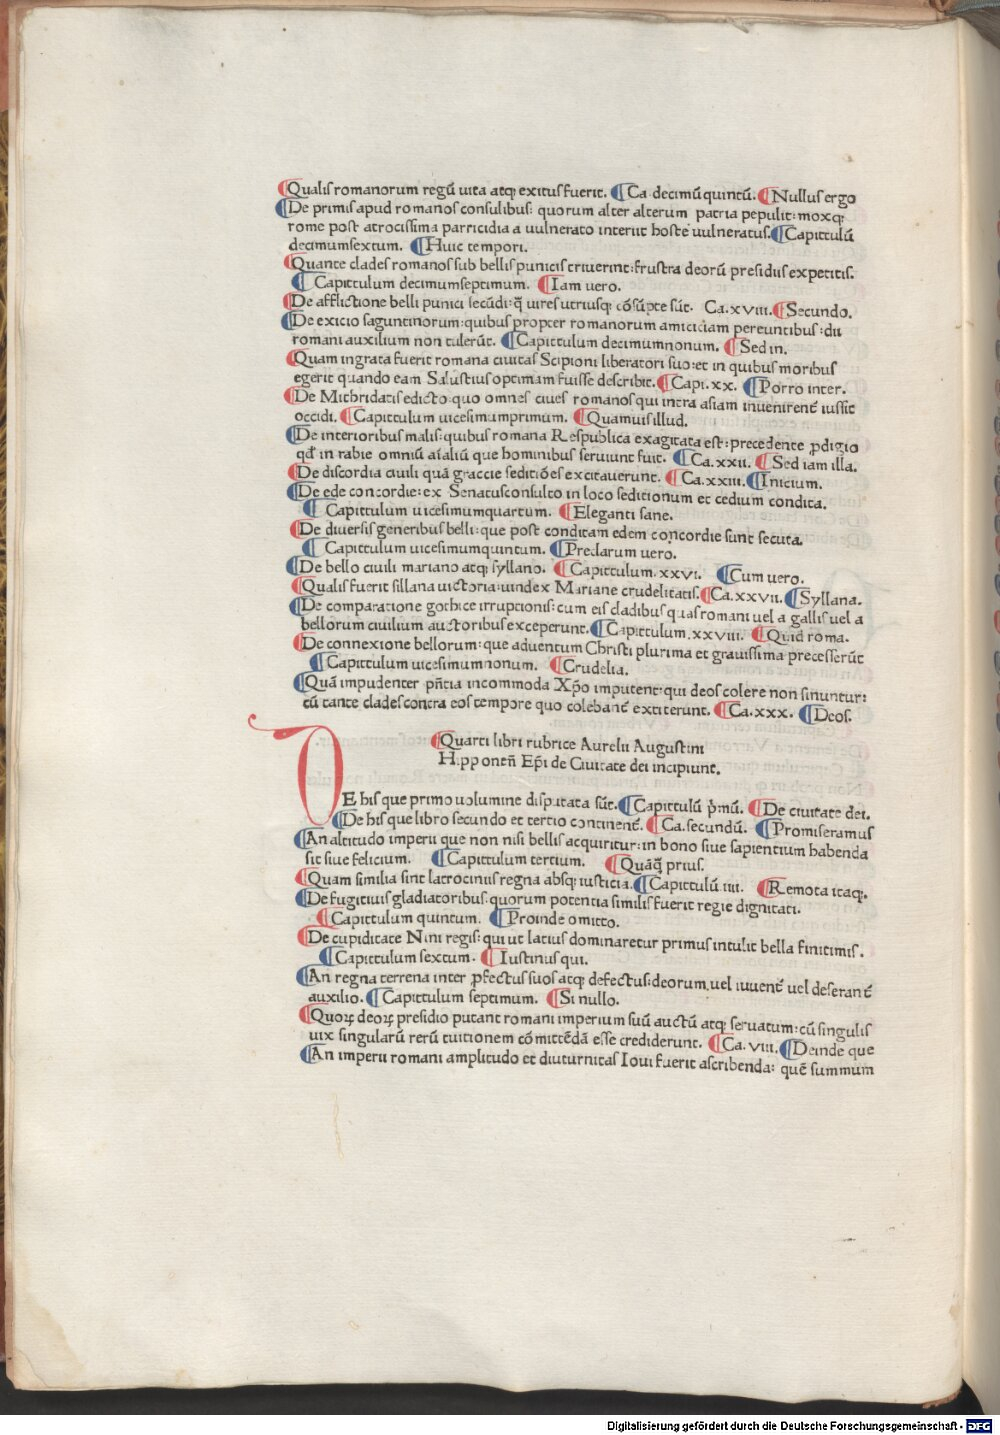 ¶Qualis romanorum regū uita atq; exitus fuerit. ¶Ca. decimū quintū. ¶Nullus ergo
¶De primis apud romanos consulibus: quorum alter alterum patria pepulit: moxq;
rome post atrocissima parricidia a uulnerato interiit hoste uulneratus. ¶Capittulū
decimumsextum. ¶Huic tempori.
¶Quante clades romanos sub bellis punicis triuerint: frustra deorū presidiis expetitis.
¶Capittulum decimumseptimum. ¶Iam uero.
¶De afflictione belli punici secūdi: q̄ uires utriusq; cōsūpte sūt. Ca. xviii. ¶Secundo.
¶De exicio saguntinorum: quibus propter romanorum amiciciam pereuntibus: dii
romani auxilium non tulerūt. ¶Capittulum decimumnonum. ¶Sed in.
¶Quam ingrata fuerit romana ciuitas Scipioni liberatori suo: et in quibus moribus
egerit quando eam Salustius optimam fuisse describit. ¶Capi. xx. ¶Porro inter.
¶De Mithridatis edicto: quo omnes ciues romanos qui intra asiam inuenirent̄ iussit
occidi. ¶Capittulum uicesimumprimum. ¶Quamuis illud.
¶De interioribus malis: quibus romana Respublica exagitata est: precedente ꝓdigio
qd' in rabie omniū aīaliū que hominibus seruiunt fuit. ¶Ca. xxii. ¶Sed iam illa.
¶De discordia ciuili quā graccie seditiōes excitauerunt. ¶Ca. xxiii. ¶Inicium.
¶De ede concordie: ex Senatusconsulto in loco seditionum et cedium condita.
¶Capittulum uicesimumquartum. ¶Eleganti sane.
¶De diuersis generibus belli: que post conditam edem concordie sunt secuta.
¶Capittulum uicesimumquintum. ¶Preclarum uero.
¶De bello ciuili mariano atq; syllano. ¶Capittulum. xxvi. ¶Cum uero.
¶Qualis fuerit sillana uictoria: uindex Mariane crudelitatis. ¶Ca. xxvii. ¶Syllana.
¶De comparatione gothice irruptionis: cum eis cladibus quas romani uel a gallis uel a
bellorum ciuilium auctoribus exceperunt. ¶Capittulum. xxviii. ¶Quid roma.
¶De connexione bellorum: que aduentum Christi plurima et grauissima precesserūt
¶Capittulum uicesimumnonum. ¶Crudelia.
¶Quā impudenter pn̄tia incommoda Xp̄o imputent: qui deos colere non sinuntur:
cū tante clades contra eos tempore quo colebant̄ extiterunt. ¶Ca. xxx. ¶Deos.
¶Quarti libri rubrice Aurelii Augustini
Hipponen̄ Ep̄i de Ciuitate dei incipiunt.
DE his que primo uolumine disputata sūt. ¶Capittulū p̄mū. ¶De ciuitate dei.
¶De his que libro secundo et tertio continent̄. ¶Ca. secundū. ¶Promiseramus
¶An altitudo imperii que non nisi bellis acquiritur: in bono siue sapientium habenda
sit siue felicium. ¶Capittulum tertium. ¶Quāq; prius.
¶Quam similia sint latrociniis regna absq; iusticia. ¶Capittulū iiii. ¶Remota itaq;.
¶De fugitiuis gladiatoribus: quorum potentia similis fuerit regie dignitati.
¶Capittulum quintum. ¶Proinde omitto.
¶De cupiditate Nini regis: qui ut latius dominaretur primus intulit bella finitimis.
¶Capittulum sextum. ¶Iustinus qui.
¶An regna terrena inter ꝓfectus suos atq; defectus: deorum uel iuuent̄ uel deserant̄
auxilio. ¶Capittulum septimum. ¶Si nullo.
¶Quoꝝ deoꝝ presidio putant romani imperium suū auctū atq; seruatum: cū singulis
uix singularū rerū tuitionem cōmittēdā esse crediderunt. ¶Ca. viii. ¶Deinde que
¶An imperii romani amplitudo et diuturnitas Ioui fuerit ascribenda: quē summum
Digitalisierung gefördert durch die Deutsche Forschungsgemeinschaft - DFG